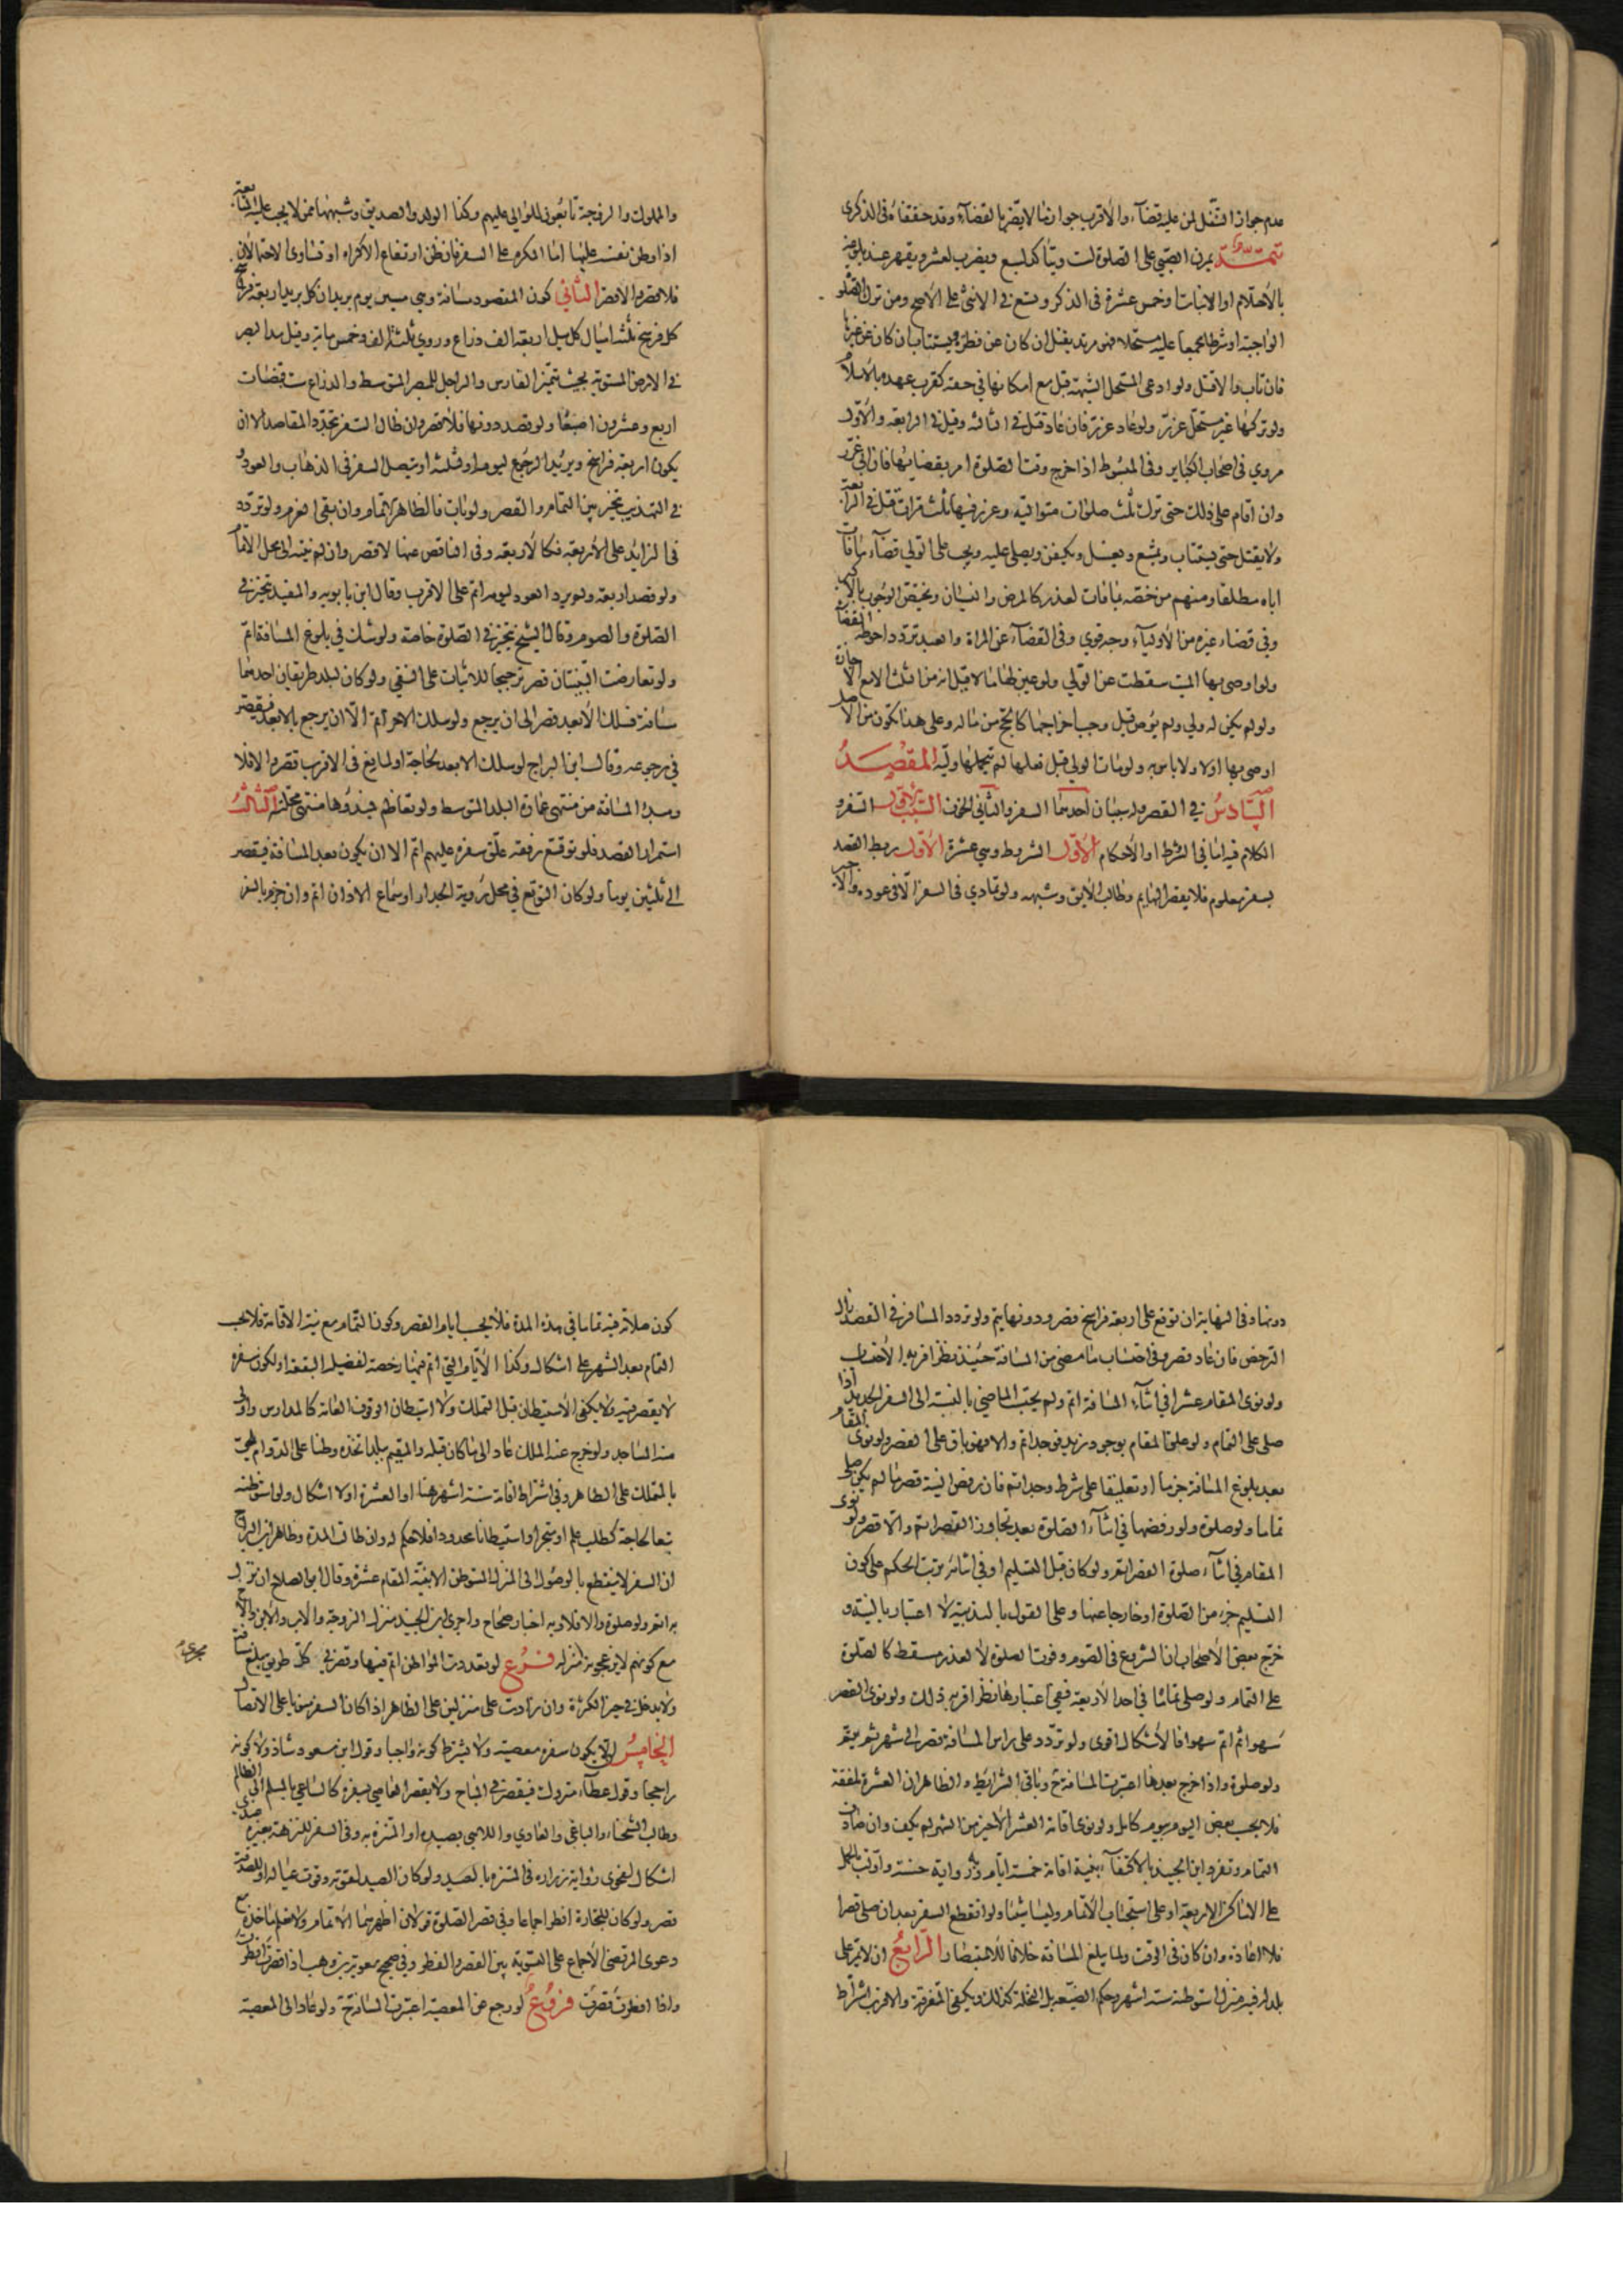 عدم جواز التنفل لمن عليه قضآء والاقرب جواز ما لا يضر بالقضآء وقد حققناه فى الذكرى
تتمة يمرن الصبي على الصلوة لست ويتأكد لسبع ويضرب لعشر ويقهر عند بلوغه
بالاحتلام او الانبات او خمس عشرة فى الذكر وتسع في الانثى على الاصح ومن ترك الصلوة
الواجبة او شرطا مجمعا عليه مستحلا فهو مرتد يقتل ان كان عن فطرة ويستتاب ان كان عن غيرها
فان تاب والا قتل ولو ادعى المستحل الشبهة قبل مع امكانها في حقه كقرب عهده بالاسلام
ولو تركها غير مستحل عزر ولو عاد عزر فان عاد قتل في الثالثة وقيل في الرابعة والاول
مروي فى اصحاب الكباير وفى المبسوط اذا خرج وقت الصلوة امر بقضائها فان ابى عزر
وان اقام على ذلك حتى ترك ثلث صلوات متواليه وعزر فيها ثلث مرات قتل في الرابعة
ولا يقتل حتى يستتاب ويمتنع ويغسل ويكفن ويصلى عليه ويجب على الولي قضآء ما فات
اباه مطلقا ومنهم من خصه بما فات لعذر كالمرض والنسيان ويختص الوجوب بالاكبر
وفي قضاء غيره من الاولياء وجه قوي وفى القضآء عن المراة والعبد تردد احوطه القضاء
ولو اوصى بها الميت سقطت عن الولي ولو عين لها مالا قبل انه من الثلث الا مع الاجازة
ولو لم يكن له ولي ولم يوص قيل وجب اخراجها كالحج من ماله وعلى هذا تكون من الاصل
اوصى بها اولا ولا باس به ولو مات الولي قبل فعلها لم يتحملها وليه المقصد
السادس في القصر وله سببان احدهما السفر والثاني الخوف السبب الاول السفر و
الكلام فيه اما في الشرط او الاحكام الاول الشروط وهي عشرة الاول ربط القصد
بسفر معلوم فلا يقصر الهايم وطالب الابق وشبهه ولو تمادي فى السفر الا فى عوده والاجير
والمملوك والزوجة تابعون للموالي عليهم وكذا الولد والصديق وشبههما ممن لا يجب عليه المتابعة
اذا وطن نفسه عليها اما المكره على السفر فان ظن ارتفاع الاكراه او تساوى الاحتمالان
فلا قصر والا قصر الثاني كون المقصود مسافة وهي مسير يوم بريدان كل بريد اربعة فراسخ
كل فرسخ ثلثة اميال كل ميل اربعة الف ذراع وروي ثلثة الف وخمس ماية وقيل مد البصر
في الارض المستوية بحيث يتميز الفارس والراجل للبصر المتوسط والذراع ست قبضات
اربع وعشرون اصبعا ولو قصد دونها فلا قصر وان طال السفر بتجدد المقاصد الا ان
يكون اربعة فراسخ ويريد الرجوع ليومه او ليلته او يتصل السفر فى الذهاب والعود و
في التهذيب يتخير بين التمام والقصر ولو بات فالظاهر الاتمام وان بقى العزم ولو تردد
فى الزايد على الاربعة فكالاربعة وفى الناقص عنها لا قصر وان لم ينته الى محل الاتمام
ولو قصد اربعة ولم يرد العود ليومه اتم على الاقرب وقال ابن بابويه والمفيد يتخير في
الصلوة والصوم وقال الشيخ يتخير في الصلوة خاصة ولو شك في بلوغ المسافة اتم
ولو تعارضت البينتان قصر ترجيحا للاثبات على النفي ولو كان لبلد طريقان احدهما
مسافة فسلك الابعد قصر الى ان يرجع ولو سلك الاقرب اتم الا ان يرجع بالابعد فيقصر
في رجوعه وقال ابن البراج لو سلك الابعد لحاجة او لمانع فى الاقرب قصر والا فلا
ومبدا المسافة من منتهى عمارة البلد المتوسط ولو تعاظم فمبدؤها منتهى محلته الثالث
استمرار القصد فلو توقع رفقه علق سفره عليهم اتم الا ان يكون بعد المسافة فيقصر
الى ثلثين يوما ولو كان التوقع في محل رؤية الجدار او سماع الاذان اتم وان جزم بالسفر
دونها وفى النهاية ان توقع على اربعة فراسخ قصر ودونها يتم ولو تردد المسافر في القصد زال
الترخص فان عاد قصر وفى احتساب ما مضى من المسافة حينئذ نظر اقربه الاحتساب
ولو نوى المقام عشرا في اثناء المسافة اتم ولم يحتسب الماضي بالنسبة الى السفر الجديد اذا
صلى على التمام ولو علق المقام بوجود زيد فوجد اتم والا فهو باق على القصر ولو نوى المقام
بعد بلوغ المسافة جزما او تعليقا على شرط وجد اتم فان رفض النية قصر ما لم يكن صلى
تماما ولو صلوة ولو رفضها في اثنآء الصلوة بعد تجاوز القصر اتم والا قصر ولو نوى
المقام في اثنآء صلوة القصر اتم ولو كان قبل التسليم او في اثنائه ترتب الحكم على كون
التسليم جزء من الصلوة او خارجا عنها وعلى القول بالندبية لا اعتبار بالنية و
خرج بعض الاصحاب ان الشروع في الصوم وفوت الصلوة لا لعذر مسقط كالصلوة
على التمام ولو صلى تماما في احد الاربعة ففي اعتبارها نظر اقربه ذلك ولو نوى القصر
سهوا ثم اتم سهوا فالاشكال اقوى ولو تردد على راس المسافة قصر الى شهر ثم يتم
ولو صلوة واذا خرج بعدها اعتبرت المسافة ح وباقى الشرايط والظاهر ان العشرة ملفقة
فلا يحسب بعض اليوم بيوم كامل ولو نوى اقامة العشر الاخير من الشهر لم يكف وان صادف
التمام وتفرد ابن الجنيد بالاكتفآء بنية اقامة خمسة ايام وبه رواية حسنة واولت بالحمل
على الاماكن الاربعة او على استحباب الاتمام وليسا شيئا ولو انقطع السفر بعد ان صلى قصرا
فلا اعادة وان كان فى الوقت ولما يبلغ المسافة خلافا للاستبصار الرابع ان لا يمر على
بلد له فيه منزل استوطنه ستة اشهر وحكم الضيعة بل النخلة كذلك ويكفي المتفرقة والاقرب اشتراط
كون صلاته فيه تماما في هذه المدة فلا يحسب ايام القصر وكون التمام مع نية الاقامة فلا يحسب
التمام بعد الشهر على اشكال وكذا الايام التي اتم فيها رخصة لفضيلة البقعة او لكون سفره
لا يقصر فيه ولا يكفي الاستيطان قبل التملك ولا استيطان الوقوف العامة كالمدارس واولى
منه المساجد ولو خرج عنه الملك عاد الى ما كان قبله والمقيم ببلد اتخذه وطنا على الدوام يلحق
بالمتملك على الظاهر وفى اشتراط اقامة ستة اشهر هنا او العشرة او لا اشكال ولو استوطنه
تبعا لحاجة كطلب علم او متجر او استيطانا محدودا فلا حكم له وان طالت المدة وظاهر ابن البراج
ان السفر لا ينقطع بالوصول الى المنزل المستوطن الا بنية المقام عشرة وقال ابو الصلاح ان نزل
به اتم ولو صلوة والا فلا وبه اخبار صحاح واجرى ابن الجنيد منزله الزوجة والاب والابن والاخ
مع كونهم لا يزعجونه منزله فرع لو تعددت المواطن اتم فيها وقصر في كل طريق يبلغ مسافة
ولا يدخل في حيز الكثرة وان زادت على منزلين على الظاهر اذا كان السفر منويا على الاتصال
الخامس الا يكون سفره معصية ولا يشترط كونه واجبا وقول ابن مسعود شاذ ولا كونه
راجحا وقول عطآء متروك فيقصر في المباح ولا يقصر العاصي بسفره كالساعي بالمسلم الى الظالم
وطالب الشحناء والباغي والعادي واللاهي بصيده او المتنزه به وفى السفر للنزهة بغيره
اشكال لفحوى رواية زراره فى المتنزه بالصيد ولو كان الصيد لقوته وقوت عياله او للصدقة
قصر ولو كان للتجارة افطر اجماعا وفي قصر الصلوة قولان اظهرهما الاتمام ولا نعلم ماخذه مع
دعوى المرتضى الاجماع على التسوية بين القصر والفطر وفي صحيح معوية بن وهب اذا قصرت افطرت
واذا افطرت قصرت فروع لو رجع عن المعصية اعتبرت المسافة ح ولو عاد الى المعصية